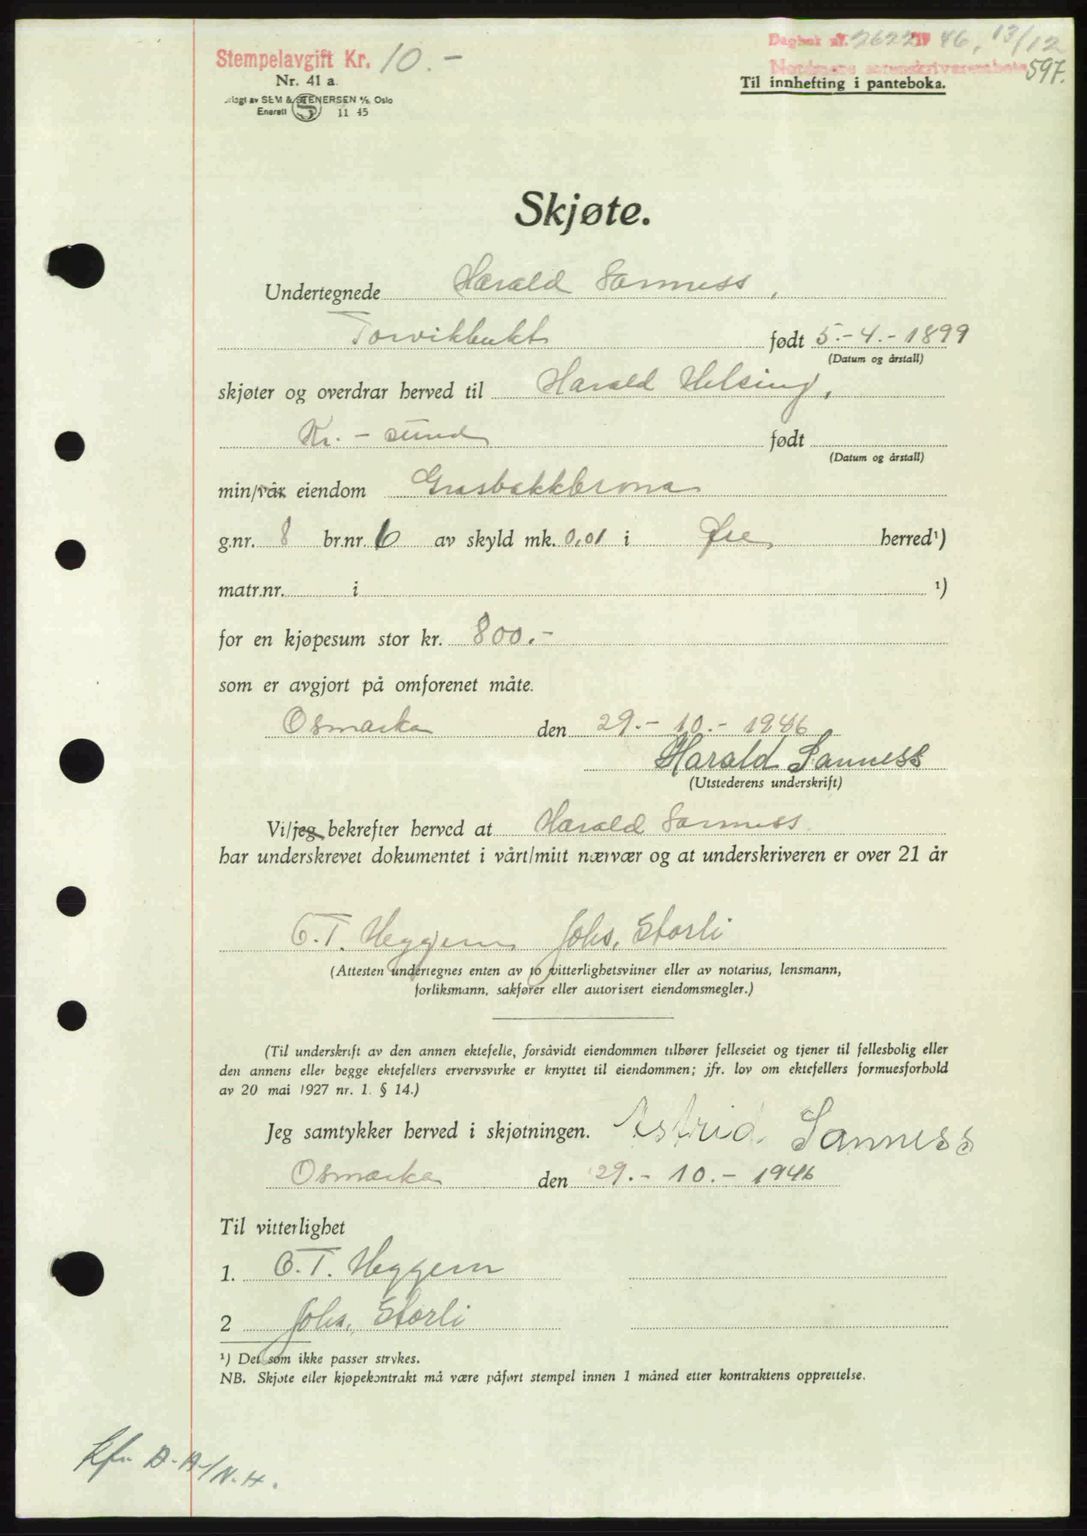 Stempelavgift Kr. 10.-
Nr. 41 a.
SEM & STENERSEN A/S, Oslo
Enerett S 11 45
Dagbok nr. 2622 1946, 13/12
Nordmøre sorenskriverembete 597.
Til innhefting i panteboka.
Skjøte.
Undertegnede Harald Sanness,
Torvikbukt født 5.-4.-1899
(Datum og årstall)
skjøter og overdrar herved til Harald Helsing,
Kr.-sund født
(Datum og årstall)
min/vår eiendom Grasbakkbrona
g.nr. 8 br.nr. 6 av skyld mk. 0,01 i Øre herred¹)
matr.nr. i ¹)
for en kjøpesum stor kr. 800.-
som er avgjort på omforenet måte.
Osmarka den 29.-10.-1946
Harald Sanness
(Utstederens underskrift)
Vi/jeg bekrefter herved at Harald Sanness
har underskrevet dokumentet i vårt/mitt nærvær og at underskriveren er over 21 år
O.T. Heggem Johs. Storli
(Attesten undertegnes enten av to vitterlighetsvitner eller av notarius, lensmann,
forliksmann, sakfører eller autorisert eiendomsmegler.)
(Til underskrift av den annen ektefelle, forsåvidt eiendommen tilhører felleseiet og tjener til fellesbolig eller
den annens eller begge ektefellers ervervsvirke er knyttet til eiendommen; jfr. lov om ektefellers formuesforhold
av 20 mai 1927 nr. 1. § 14.)
Jeg samtykker herved i skjøtningen. Astrid Sanness
Osmarka den 29.-10.-1946
Til vitterlighet
1. O.T. Heggem
2 Johs. Storli
¹) Det som ikke passer strykes.
NB. Skjøte eller kjøpekontrakt må være påført stempel innen 1 måned etter kontraktens opprettelse.
N.H.